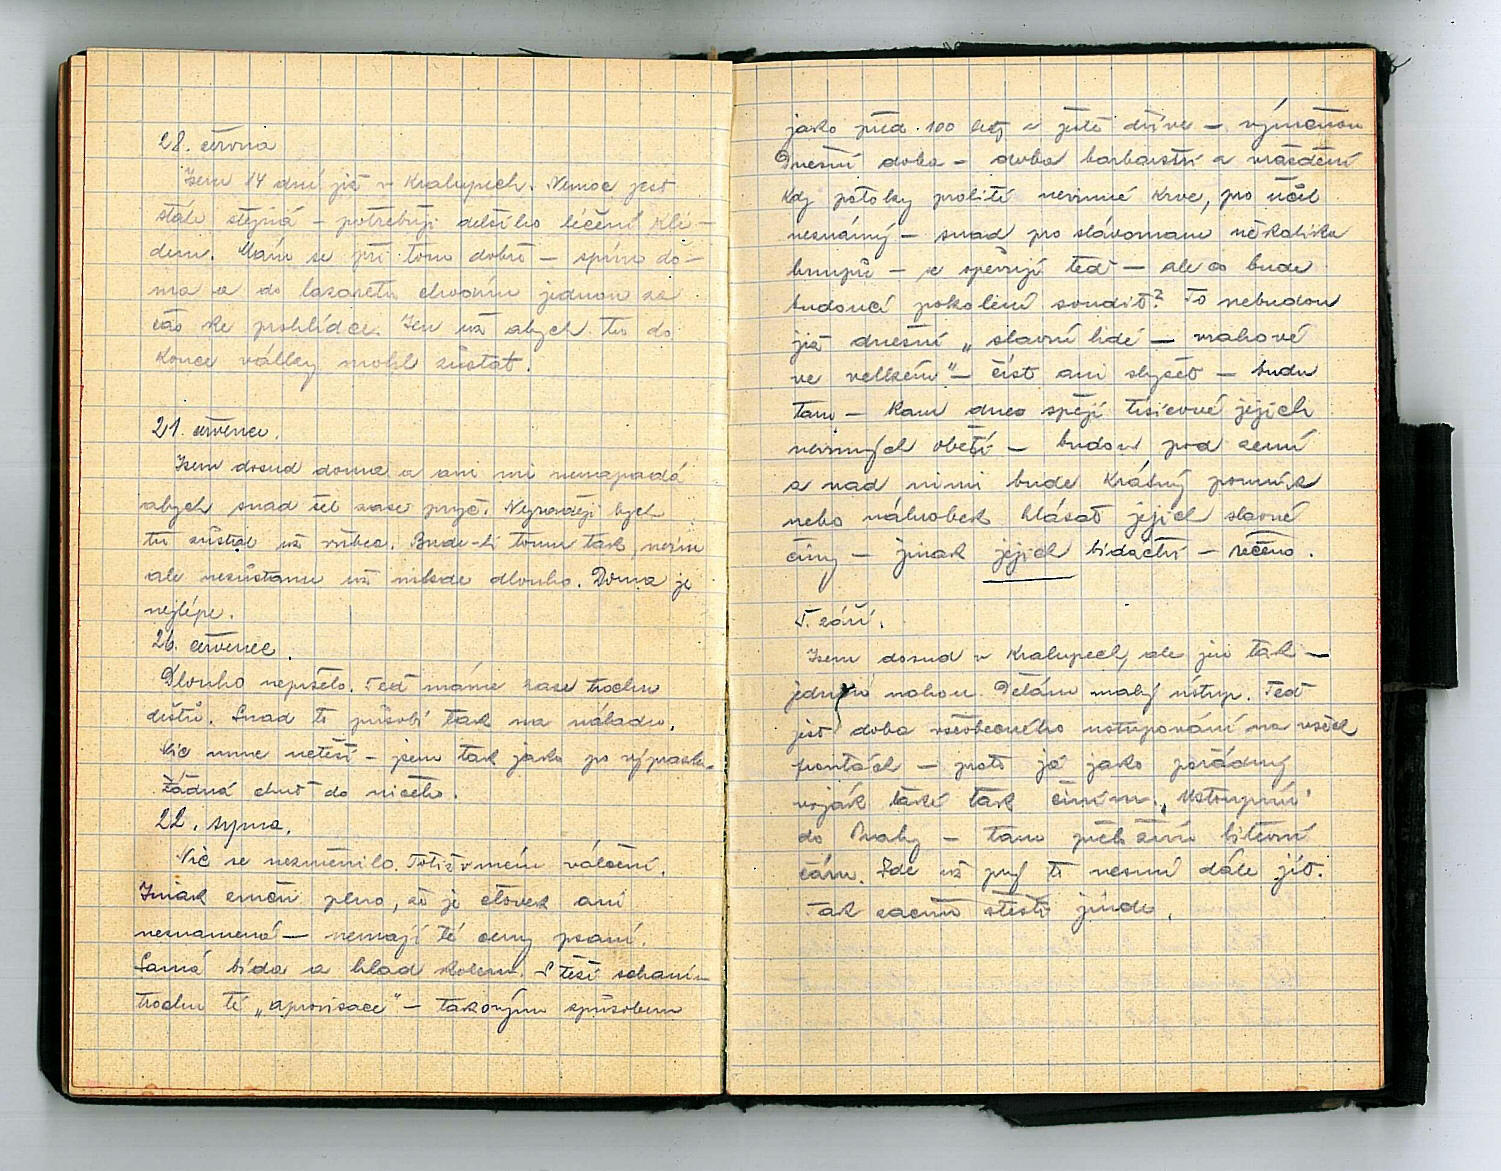 28. června
Jsem 14 dní již v Kralupech. Nemoc jest
stále stejná – potřebuji delšího léčení kli-
dem. Mám se při tom dobře – spím do-
ma a do lazaretu chodím jednou za
čas ke prohlídce. Jen už abych tu do
konce války mohl zůstat.
21. červenec.
Jsem dosud doma a ani mi nenapadá
abych snad šel zase pryč. Nejraději bych
tu zůstal už vůbec. Bude-li tomu tak, nevím
ale nezůstanu už nikde dlouho. Doma je
nejlépe.
26. červenec.
Dlouho nepršelo. Teď máme zase trochu
deště. Snad to působí tak na náladu.
Nic mne netěší – jsem tak jako po výprasku.
Žádná chuť do ničeho.
22. srpna.
Nic se nezměnilo. Totiž v mém válčení.
Jinak změn plno, že je člověk ani
neznamená – nemají té ceny psaní.
Samá bída a hlad kolem. S těží scháním
trochu té „aprovisace" – takovým způsobem
jako před 100 lety a ještě dříve – výměnou
Dnešní doba – doba barbarství a vraždění
Kdy potoky prolité nevinné krve, pro účel
neznámý – snad pro slávomam několika
– ale co bude
budoucí pokolení soudit? To nebudou
již dnešní „slavní lidé – vrahové
ve velkém" – číst ani slyšet – budou
tam – kam dnes spějí tisícové jejich
nevinných obětí – budou pod zemí
a nad nimi bude krásný pomník
nebo náhrobek hlásat jejich slavné
činy – jinak jejich bídactví – řečeno.
září.
Jsem dosud v Kralupech, ale jen tak –
jednou nohou. Dělám malý ústup. Teď
jest doba všeobecného ustupování na všech
frontách – proto já jako pořádný
voják také tak činím. Ustoupím
do Prahy – tam bitevní
čáru. Zde už prý to nesmí dále jít.
Tak zacním štěstí jinde.